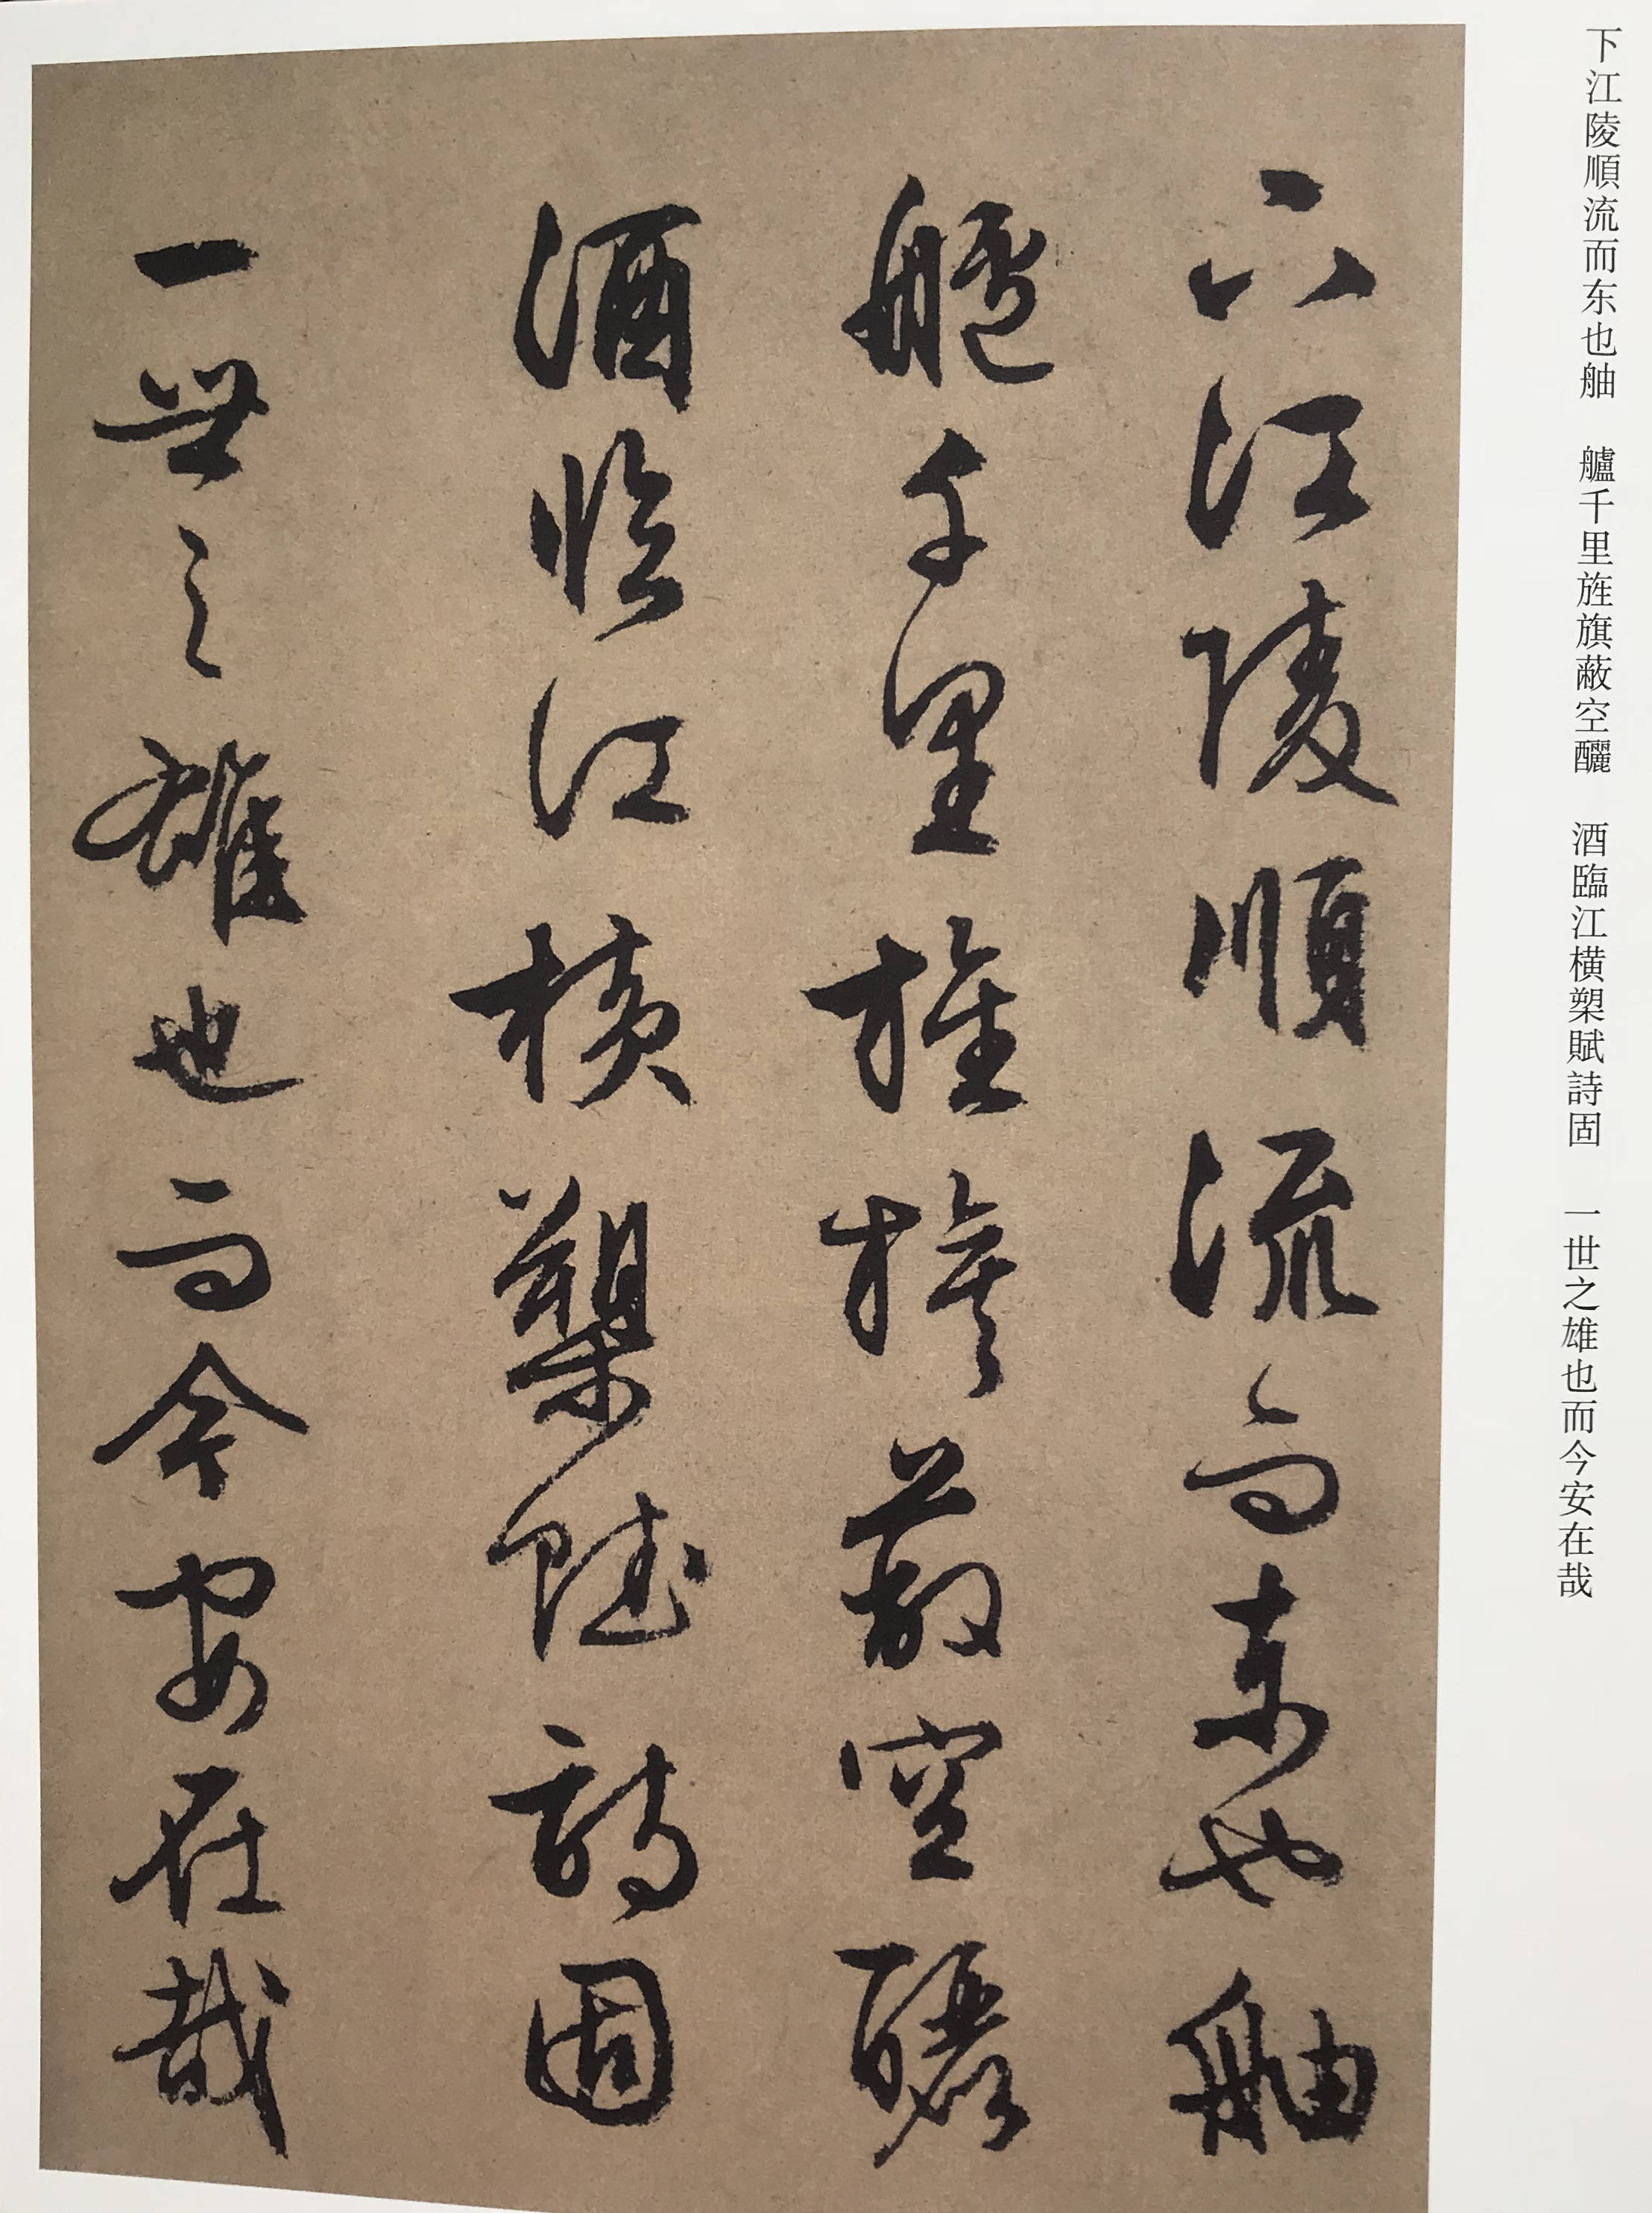 下江陵順流而东也舳　艫千里旌旗蔽空釃　酒臨江横槊賦詩固　一世之雄也而今安在哉
下江陵順流而東也舳
艫千里旌旗蔽空釃
酒臨江横槊賦詩固
一世之雄也而今安在哉